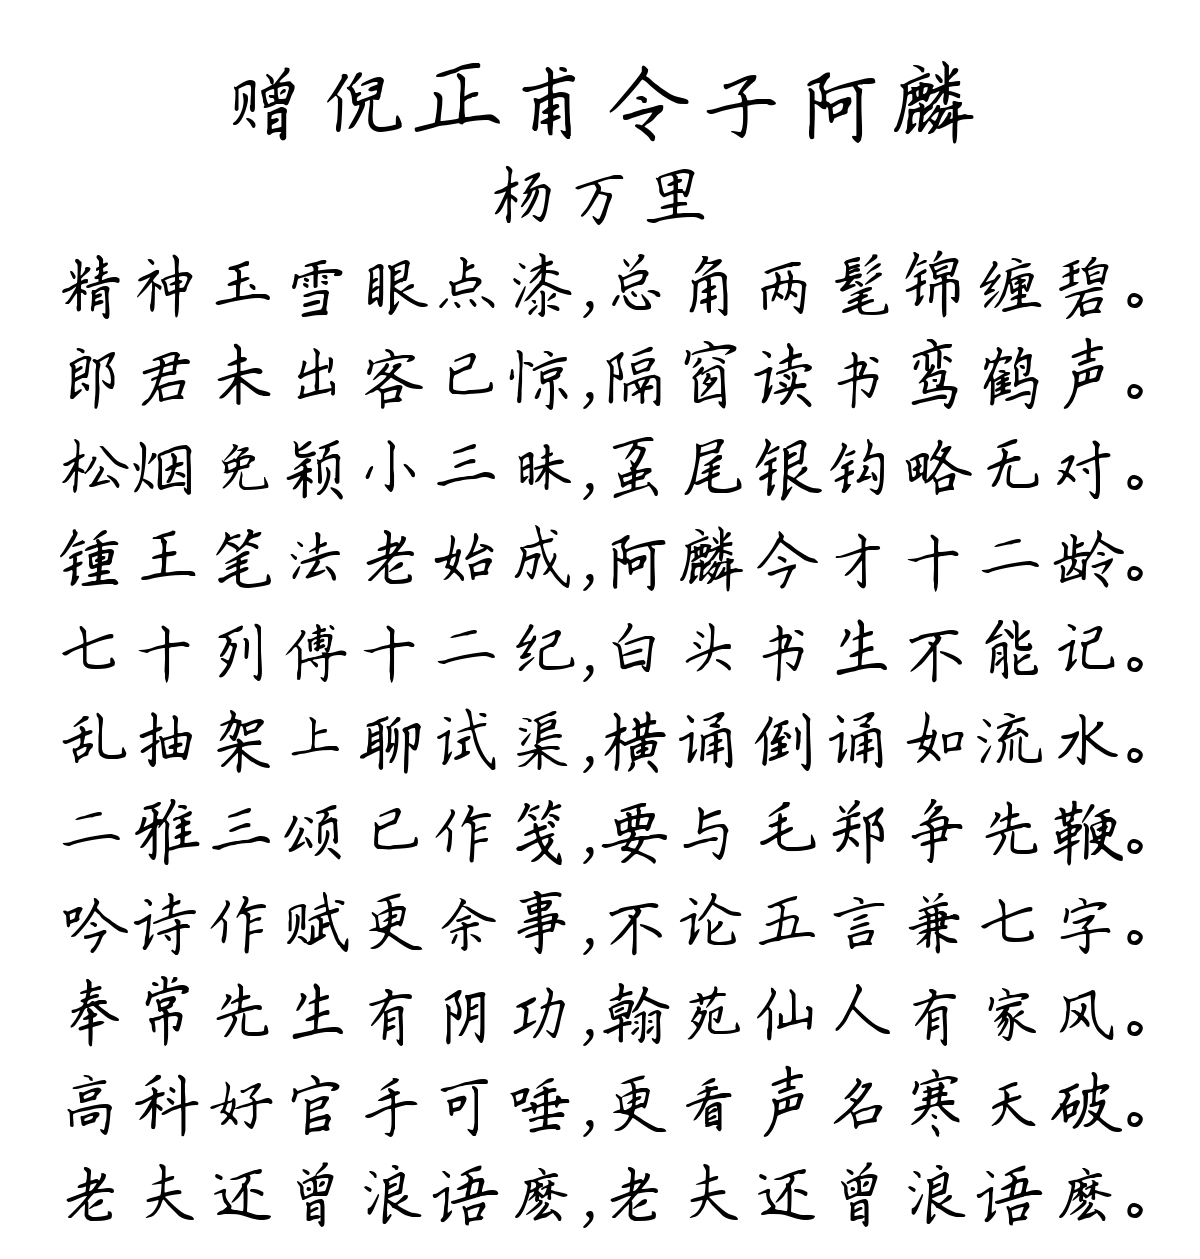 赠倪正甫令子阿麟
杨万里
精神玉雪眼点漆,总角两髦锦缠碧。
郎君未出客已惊,隔窗读书鸾鹤声。
松烟免颖小三昧,虿尾银钩略无对。
锺王笔法老始成,阿麟今才十二龄。
七十列傅十二纪,白头书生不能记。
乱抽架上聊试渠,横诵倒诵如流水。
二雅三颂已作笺,要与毛郑争先鞭。
吟诗作赋更余事,不论五言兼七字。
奉常先生有阴功,翰苑仙人有家风。
高科好官手可唾,更看声名寒天破。
老夫还曾浪语麽,老夫还曾浪语麽。